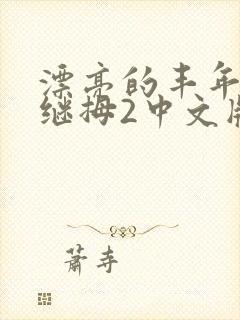 漂亮的丰年
继拇2中文版
萧寺